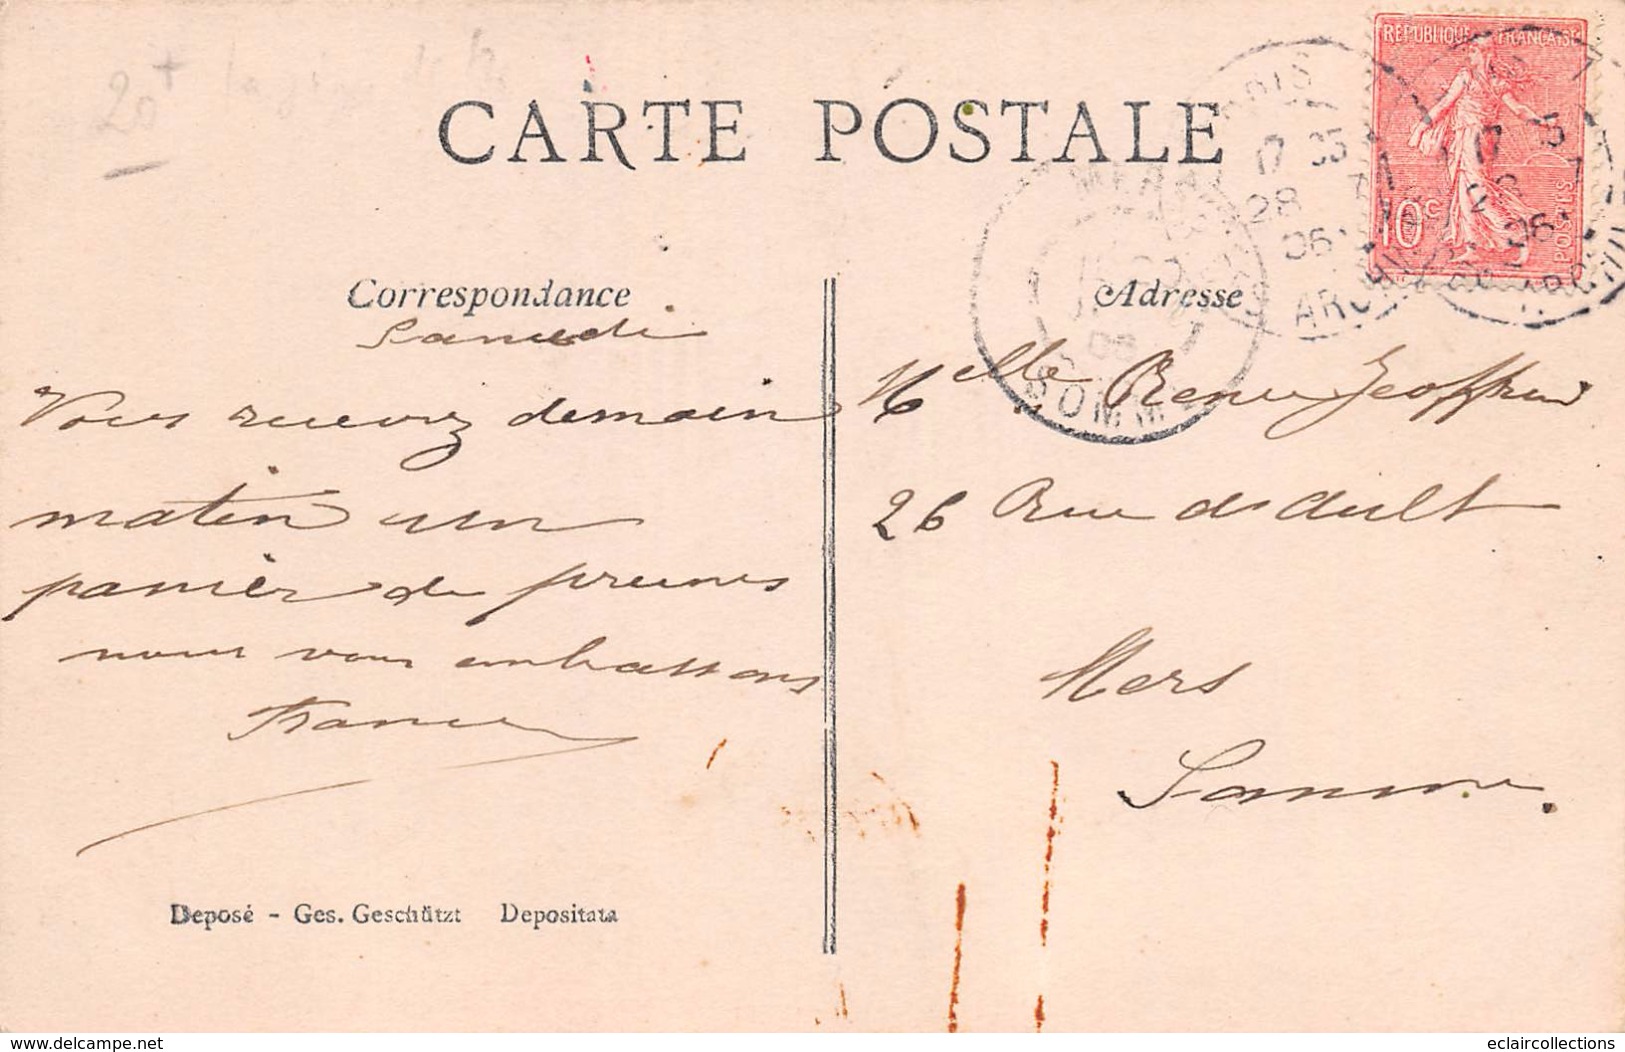 20+
CARTE POSTALE
REPUBLIQUE FRANÇAISE
10c
POSTES
17 35
28
06
MERS
SOMME
Correspondance
Adresse
Samedi
Vous recevrez demain
matin un
panier de prunes
nous vous embrassons
France
Melle Renée Geoffren
26 Rue d'Ault
Mers
Somme.
Deposé - Ges. Geschützt Depositata
www.delcampe.net
eclaircollections